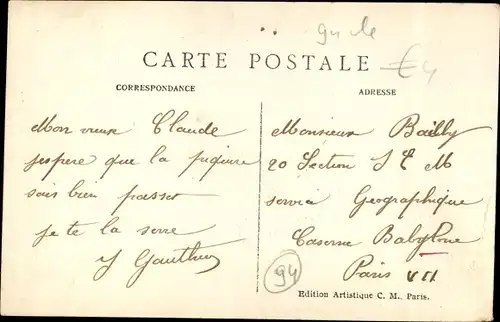 CARTE POSTALE
CORRESPONDANCE
Mon vieux Claude
j'espere que la piqure
sais bien passer
je te la serre
J Gauthier
ADRESSE
Monsieur Bailly
20 Section S E M
service Geographique
Caserne Babylone
Paris VII
94
Edition Artistique C. M., Paris.